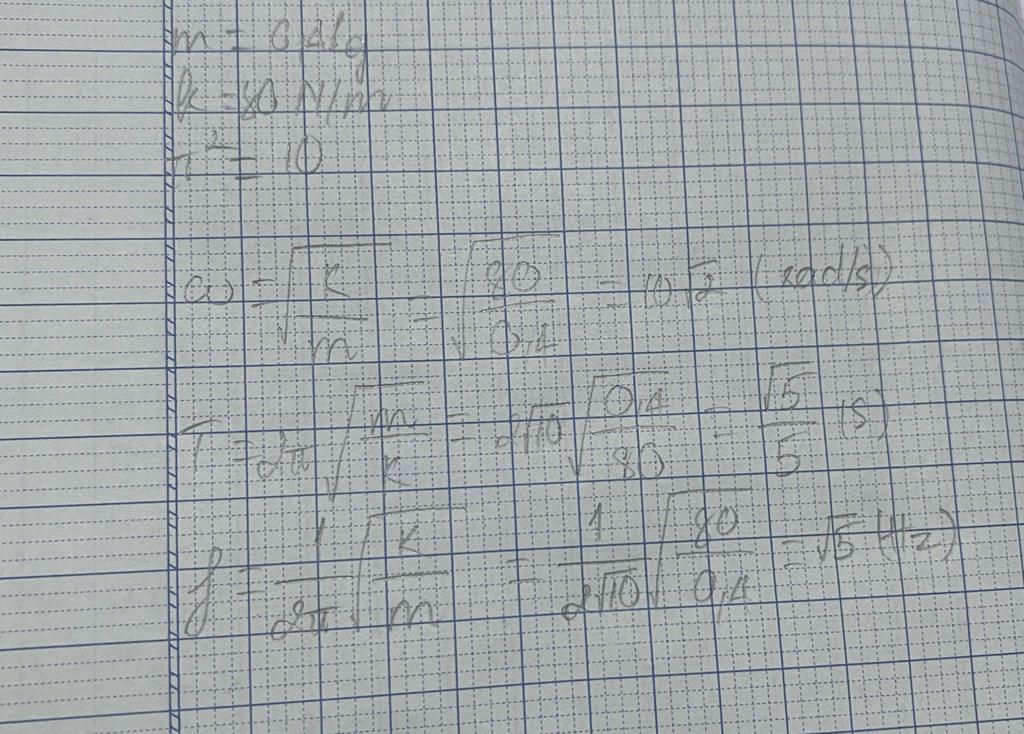 m = 0,4kg
k = 80 N/m
π² = 10
ω = √(k/m) = √(80/0,4) = 10√2 (rad/s)
T = 2π√(m/k) = 2√10 √(0,4/80) = √5/5 (s)
f = 1/2π √(k/m) = 1/2√10 √(80/0,4) = √5 (Hz)